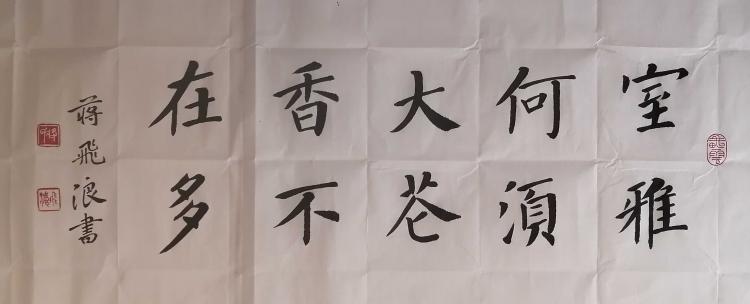 室雅
何須
大花
香不
在多
蔣飛浪書